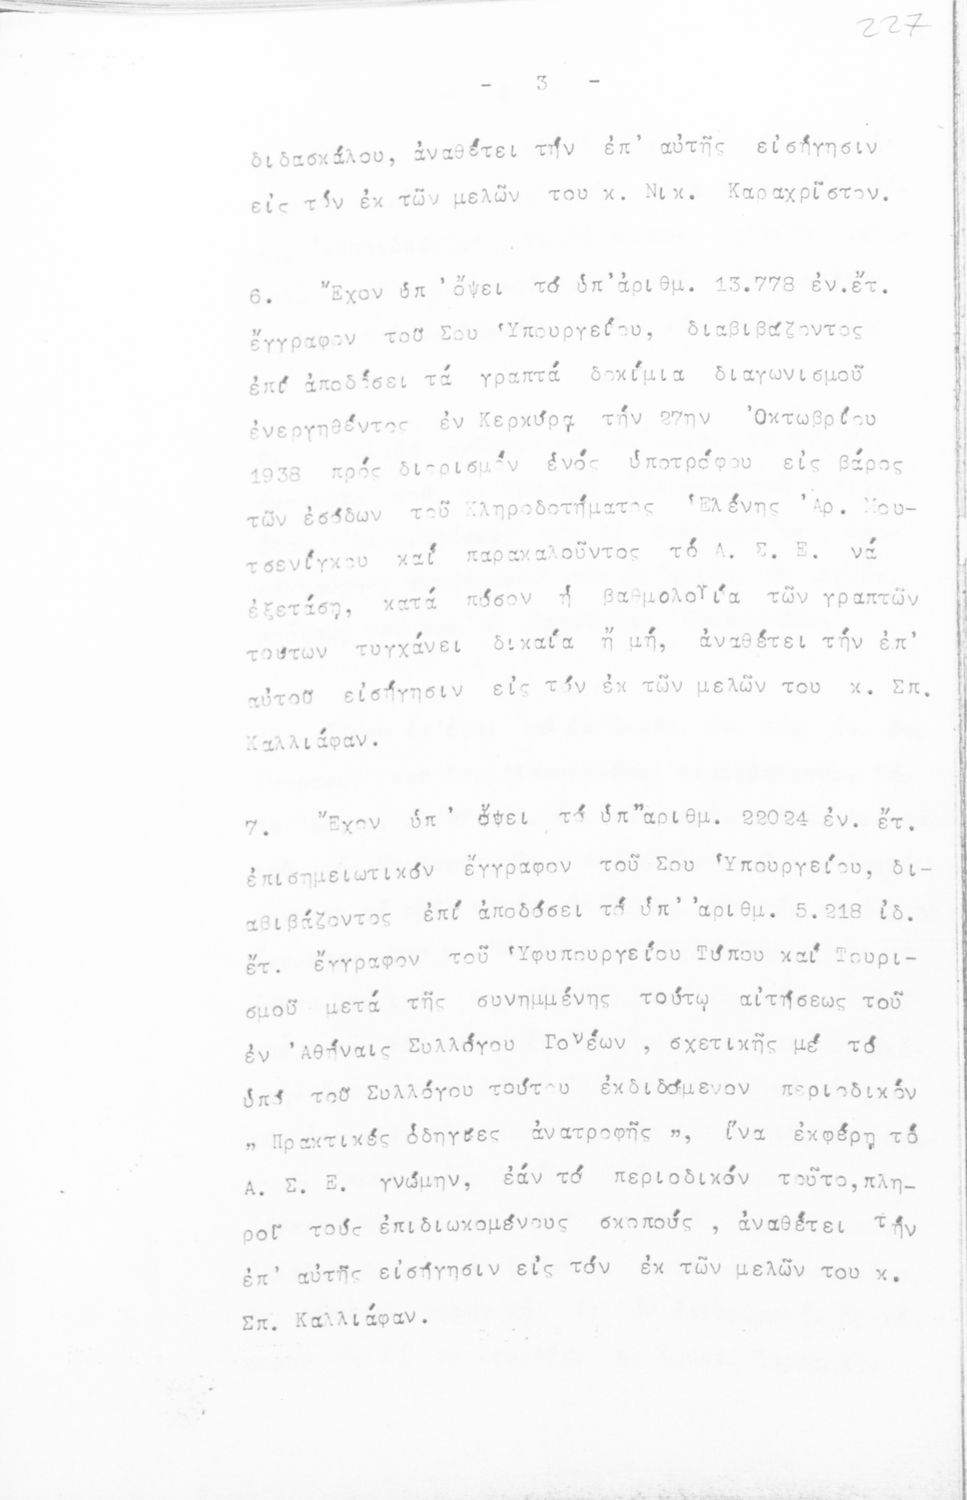 227
- 3 -
διδασκάλου, ἀναθέτει τήν ἐπ' αὐτῆς εἰσήγησιν
εἰς τόν ἐκ τῶν μελῶν του κ. Νικ. Καραχρῖστον.
6. Ἔχον ὑπ' ὄψει τό ὑπ' ἀριθμ. 13.778 ἐν.ἔτ.
ἔγγραφον τοῦ Σου Ὑπουργείου, διαβιβάζοντος
ἐπί ἀποδόσει τά γραπτά δοκίμια διαγωνισμοῦ
ἐνεργηθέντος ἐν Κερκύρᾳ τήν 27ην Ὀκτωβρίου
1938 πρός διορισμόν ἑνός ὑποτρόφου εἰς βάρος
τῶν ἐσόδων τοῦ Κληροδοτήματος Ἑλένης Ἀρ. Μου-
τσενίγκου καί παρακαλοῦντος τό Α. Σ. Ε. νά
ἐξετάσῃ, κατά πόσον ἡ βαθμολογία τῶν γραπτῶν
τούτων τυγχάνει δικαία ἤ μή, ἀναθέτει τήν ἐπ'
αὐτοῦ εἰσήγησιν εἰς τόν ἐκ τῶν μελῶν του κ. Σπ.
Καλλιάφαν.
7. Ἔχον ὑπ' ὄψει τό ὑπ' ἀριθμ. 22024 ἐν. ἔτ.
ἐπισημειωτικόν ἔγγραφον τοῦ Σου Ὑπουργείου, δι-
αβιβάζοντος ἐπί ἀποδόσει τό ὑπ' ἀριθμ. 5.218 ἰδ.
ἔτ. ἔγγραφον τοῦ Ὑφυπουργείου Τύπου καί Τουρι-
σμοῦ μετά τῆς συνημμένης τούτῳ αἰτήσεως τοῦ
ἐν Ἀθήναις Συλλόγου Γονέων, σχετικῆς μέ τό
ὑπό τοῦ Συλλόγου τούτου ἐκδιδόμενον περιοδικόν
„ Πρακτικές ὁδηγίες ἀνατροφῆς „, ἵνα ἐκφέρῃ τό
Α. Σ. Ε. γνώμην, ἐάν τό περιοδικόν τοῦτο, πλη-
ροῖ τούς ἐπιδιωκομένους σκοπούς, ἀναθέτει τήν
ἐπ' αὐτῆς εἰσήγησιν εἰς τόν ἐκ τῶν μελῶν του κ.
Σπ. Καλλιάφαν.